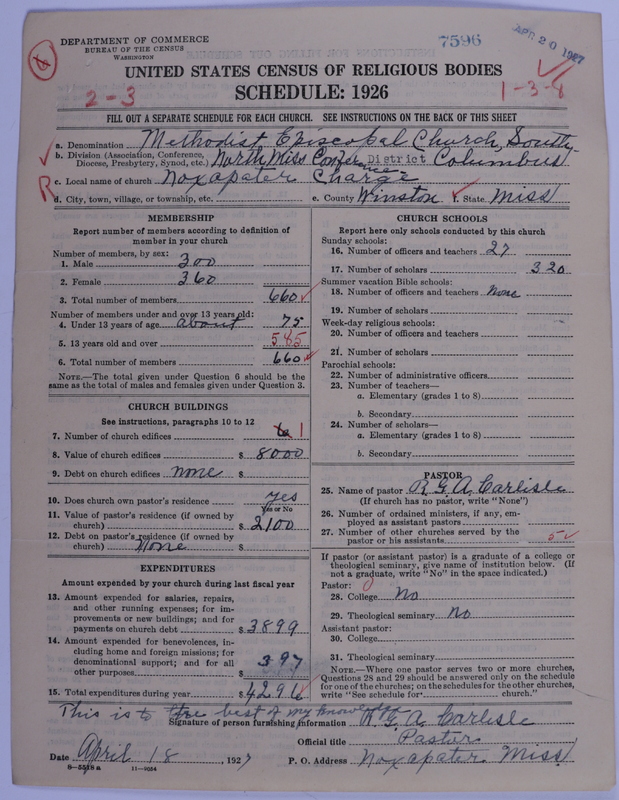 DEPARTMENT OF COMMERCE
BUREAU OF THE CENSUS
WASHINGTON
7596
APR 20 1927
UNITED STATES CENSUS OF RELIGIOUS BODIES
2-3
SCHEDULE: 1926
1-3-8
FILL OUT A SEPARATE SCHEDULE FOR EACH CHURCH. SEE INSTRUCTIONS ON THE BACK OF THIS SHEET
a. Denomination Methodist Episcopal Church, South
b. Division (Association, Conference, Diocese, Presbytery, Synod, etc.) North Miss Conference District Columbus
c. Local name of church Noxapater Charge
R
d. City, town, village, or township, etc. e. County Winston f. State. Miss
MEMBERSHIP
Report number of members according to definition of member in your church
Number of members, by sex:
1. Male 300
2. Female 360
3. Total number of members 660
Number of members under and over 13 years old:
4. Under 13 years of age about 75
5. 13 years old and over 585
6. Total number of members 660
NOTE.—The total given under Question 6 should be the same as the total of males and females given under Question 3.
CHURCH BUILDINGS
See instructions, paragraphs 10 to 12
7. Number of church edifices 6 1
8. Value of church edifices $ 8000
9. Debt on church edifices none $
10. Does church own pastor's residence yes
Yes or No
11. Value of pastor's residence (if owned by church) $ 2100
12. Debt on pastor's residence (if owned by church) None $
EXPENDITURES
Amount expended by your church during last fiscal year
13. Amount expended for salaries, repairs, and other running expenses; for improvements or new buildings; and for payments on church debt $ 3899
14. Amount expended for benevolences, including home and foreign missions; for denominational support; and for all other purposes 397
15. Total expenditures during year $ 4296
CHURCH SCHOOLS
Report here only schools conducted by this church
Sunday schools:
16. Number of officers and teachers 27
17. Number of scholars 320
Summer vacation Bible schools:
18. Number of officers and teachers None
19. Number of scholars
Week-day religious schools:
20. Number of officers and teachers
21. Number of scholars
Parochial schools:
22. Number of administrative officers
23. Number of teachers—
a. Elementary (grades 1 to 8)
b. Secondary
24. Number of scholars—
a. Elementary (grades 1 to 8)
b. Secondary
PASTOR
25. Name of pastor R. G. A. Carlisle
(If church has no pastor, write "None")
26. Number of ordained ministers, if any, employed as assistant pastors
27. Number of other churches served by the pastor or his assistants 5
If pastor (or assistant pastor) is a graduate of a college or theological seminary, give name of institution below. (If not a graduate, write "No" in the space indicated.)
Pastor: 0
28. College No
29. Theological seminary No
Assistant pastor:
30. College
31. Theological seminary
NOTE.—Where one pastor serves two or more churches, Questions 28 and 29 should be answered only on the schedule for one of the churches; on the schedules for the other churches, write "See schedule for church."
This is to the best of my knowledge
Signature of person furnishing information R. G. A. Carlisle
Official title Pastor
Date April 18, 1927 P. O. Address Noxapater Miss
8—5518a 11—9054